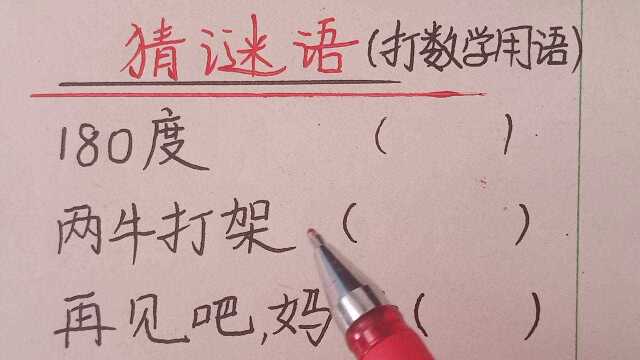 猜谜语(打数学用语)
180度 ( )
两牛打架 ( )
再见吧,妈 ( )